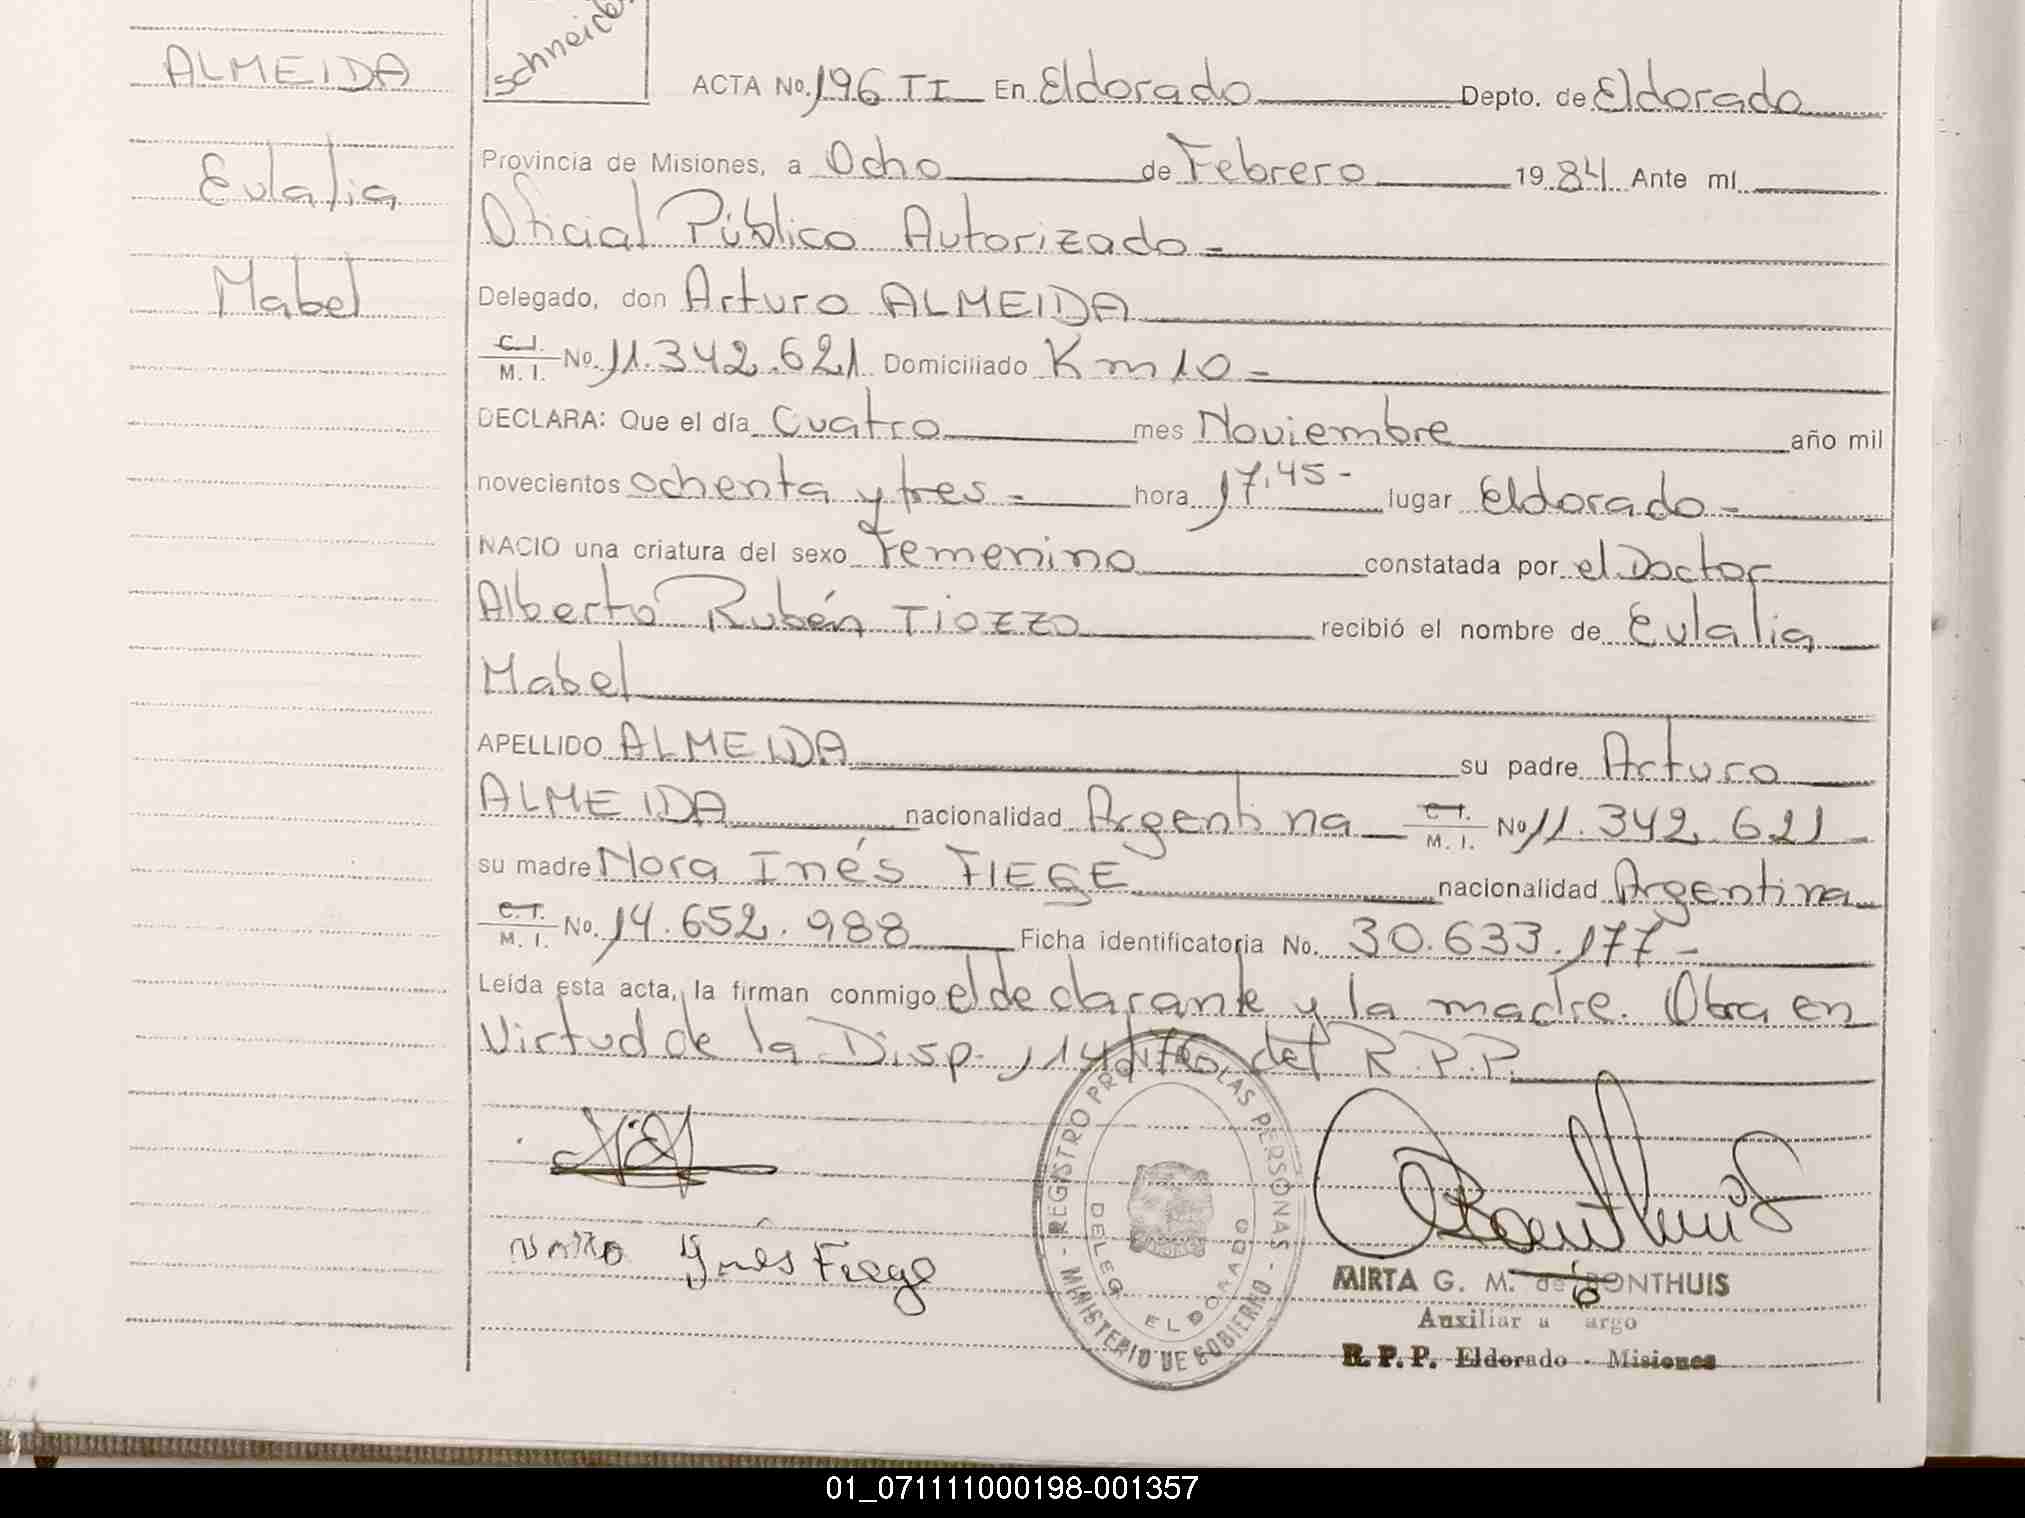 ALMEIDA
Eulalia
Mabel
ACTA No. 196 TI En Eldorado Depto. de Eldorado
Provincia de Misiones, a Ocho de Febrero 19 84 Ante mí
Oficial Público Autorizado -
Delegado, don Arturo ALMEIDA
C.I. M. I. No. 11.342.621 Domiciliado Km 10 -
DECLARA: Que el día Cuatro mes Noviembre año mil
novecientos ochenta y tres - hora 17,45 - lugar Eldorado -
NACIO una criatura del sexo Femenino constatada por el Doctor
Alberto Rubén TIOZZO recibió el nombre de Eulalia
Mabel
APELLIDO ALMEIDA su padre Arturo
ALMEIDA nacionalidad Argentina C.I. M. I. No 11.342.621 -
su madre Nora Inés FIEGE nacionalidad Argentina
C.I. M. I. No. 14.652.988 Ficha identificatoria No. 30.633.177 -
Leída esta acta, la firman conmigo el declarante y la madre. Obra en
Virtud de la Disp. 114/76 del R.P.P.
Ynes Fiege
REGISTRO PROV. DE LAS PERSONAS
DELEG. ELDORADO
- MINISTERIO DE GOBIERNO -
MIRTA G. M. de BONTHUIS
Auxiliar a argo
R. P. P. Eldorado - Misiones
01_071111000198-001357